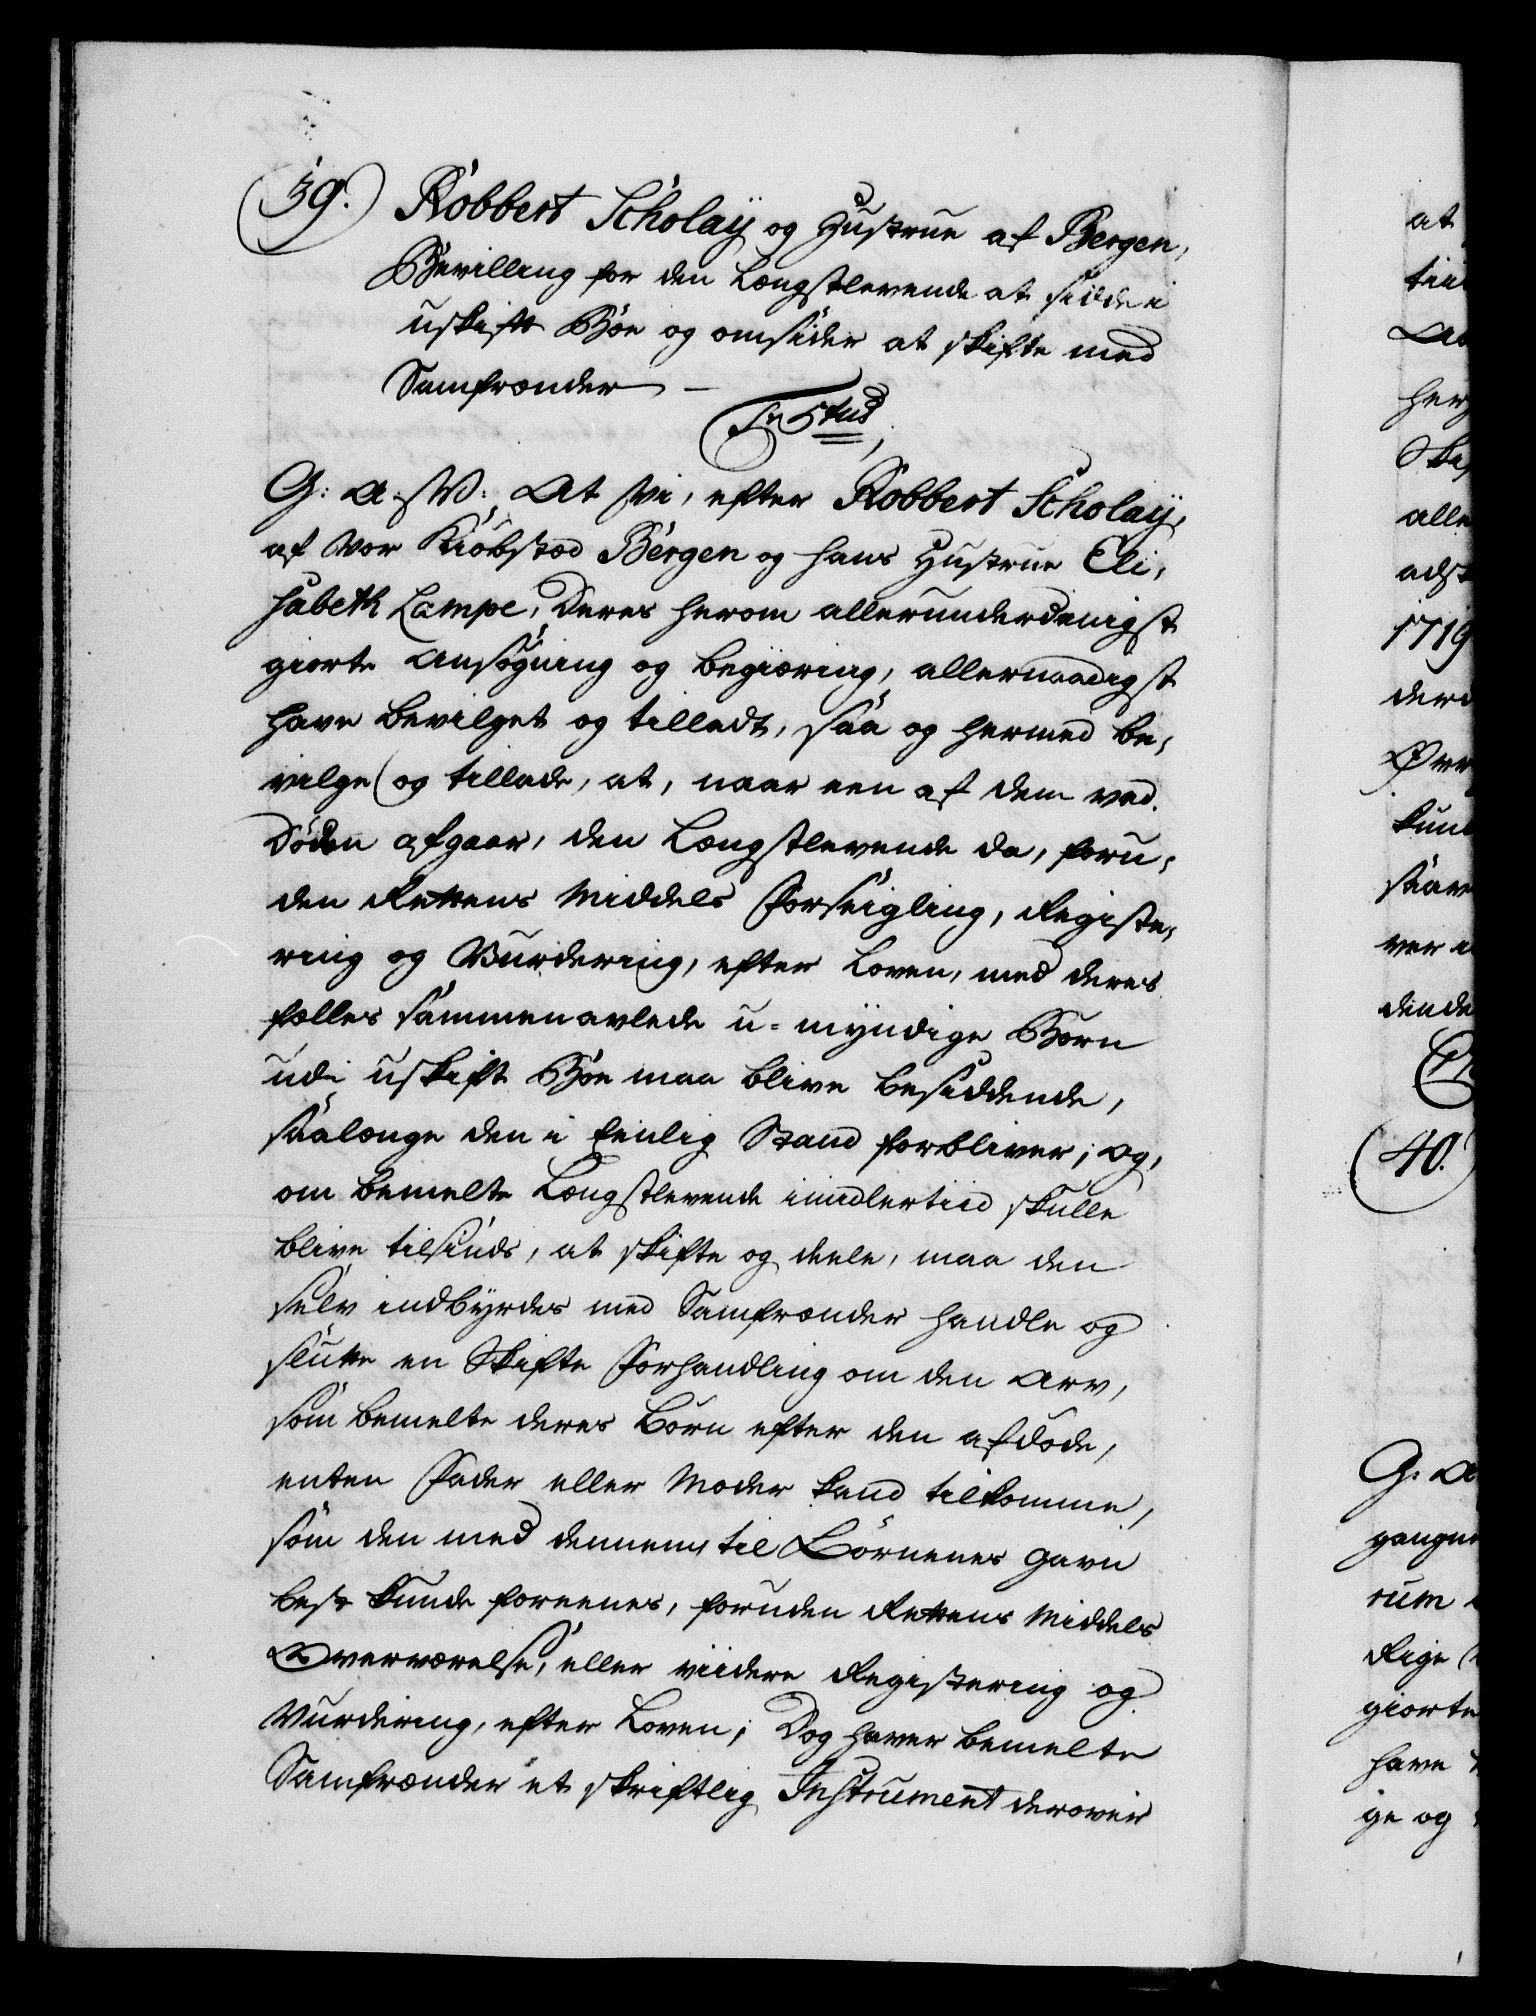 39. Robbert Scholaÿ og Hustrue af Bergen,
Bevilling for den Længstlevende at sidde i
uskift Boe og omsider at skifte med
Samfrænder —
G: A: W: At Vi, efter Robbert Scholaÿ,
af Vor Kiöbstæd Bergen og hans Hustrue Eli,
sabeth Lampe, Deres herom allerunderdanigst
giorte Ansøgning og begiæring, allernaadigst
have bevilget og tilladt, saa og hermed be,
vilge og tillade, at, naar een af dem ved
Døden afgaar, den Længstlevende da, foru,
den Rettens Middels Forseigling, Registe,
ring og Vurdering, efter Loven, med deres
fælles sammenavlede u-mÿndige Børn
udi uskift Boe maa blive besiddende,
saalænge den i Eenlig Stand forbliver; og,
om bemelte Længstlevende imidlertiid skulle
blive tilsinds, at skifte og deele, maa den
selv indbÿrdes med Samfrænder handle og
slutte en Skifte Forhandling om den Arv,
som bemelte deres Børn efter den afdøde,
enten Fader eller Moder kand tilkomme,
som den med dennem til Børnenes Gavn
best kunde foreenes, foruden Rettens Middels
Overværelse, eller viidere Registering og
Vurdering, efter Loven; Dog haver bemelte
Samfrænder et skriftlig Instrument derover
at
tiid
her
Skif
alle
1719
dere
kund
saav
ver
dende
40.
G: A
gangne
rum
Rige
giorte
have
ge og